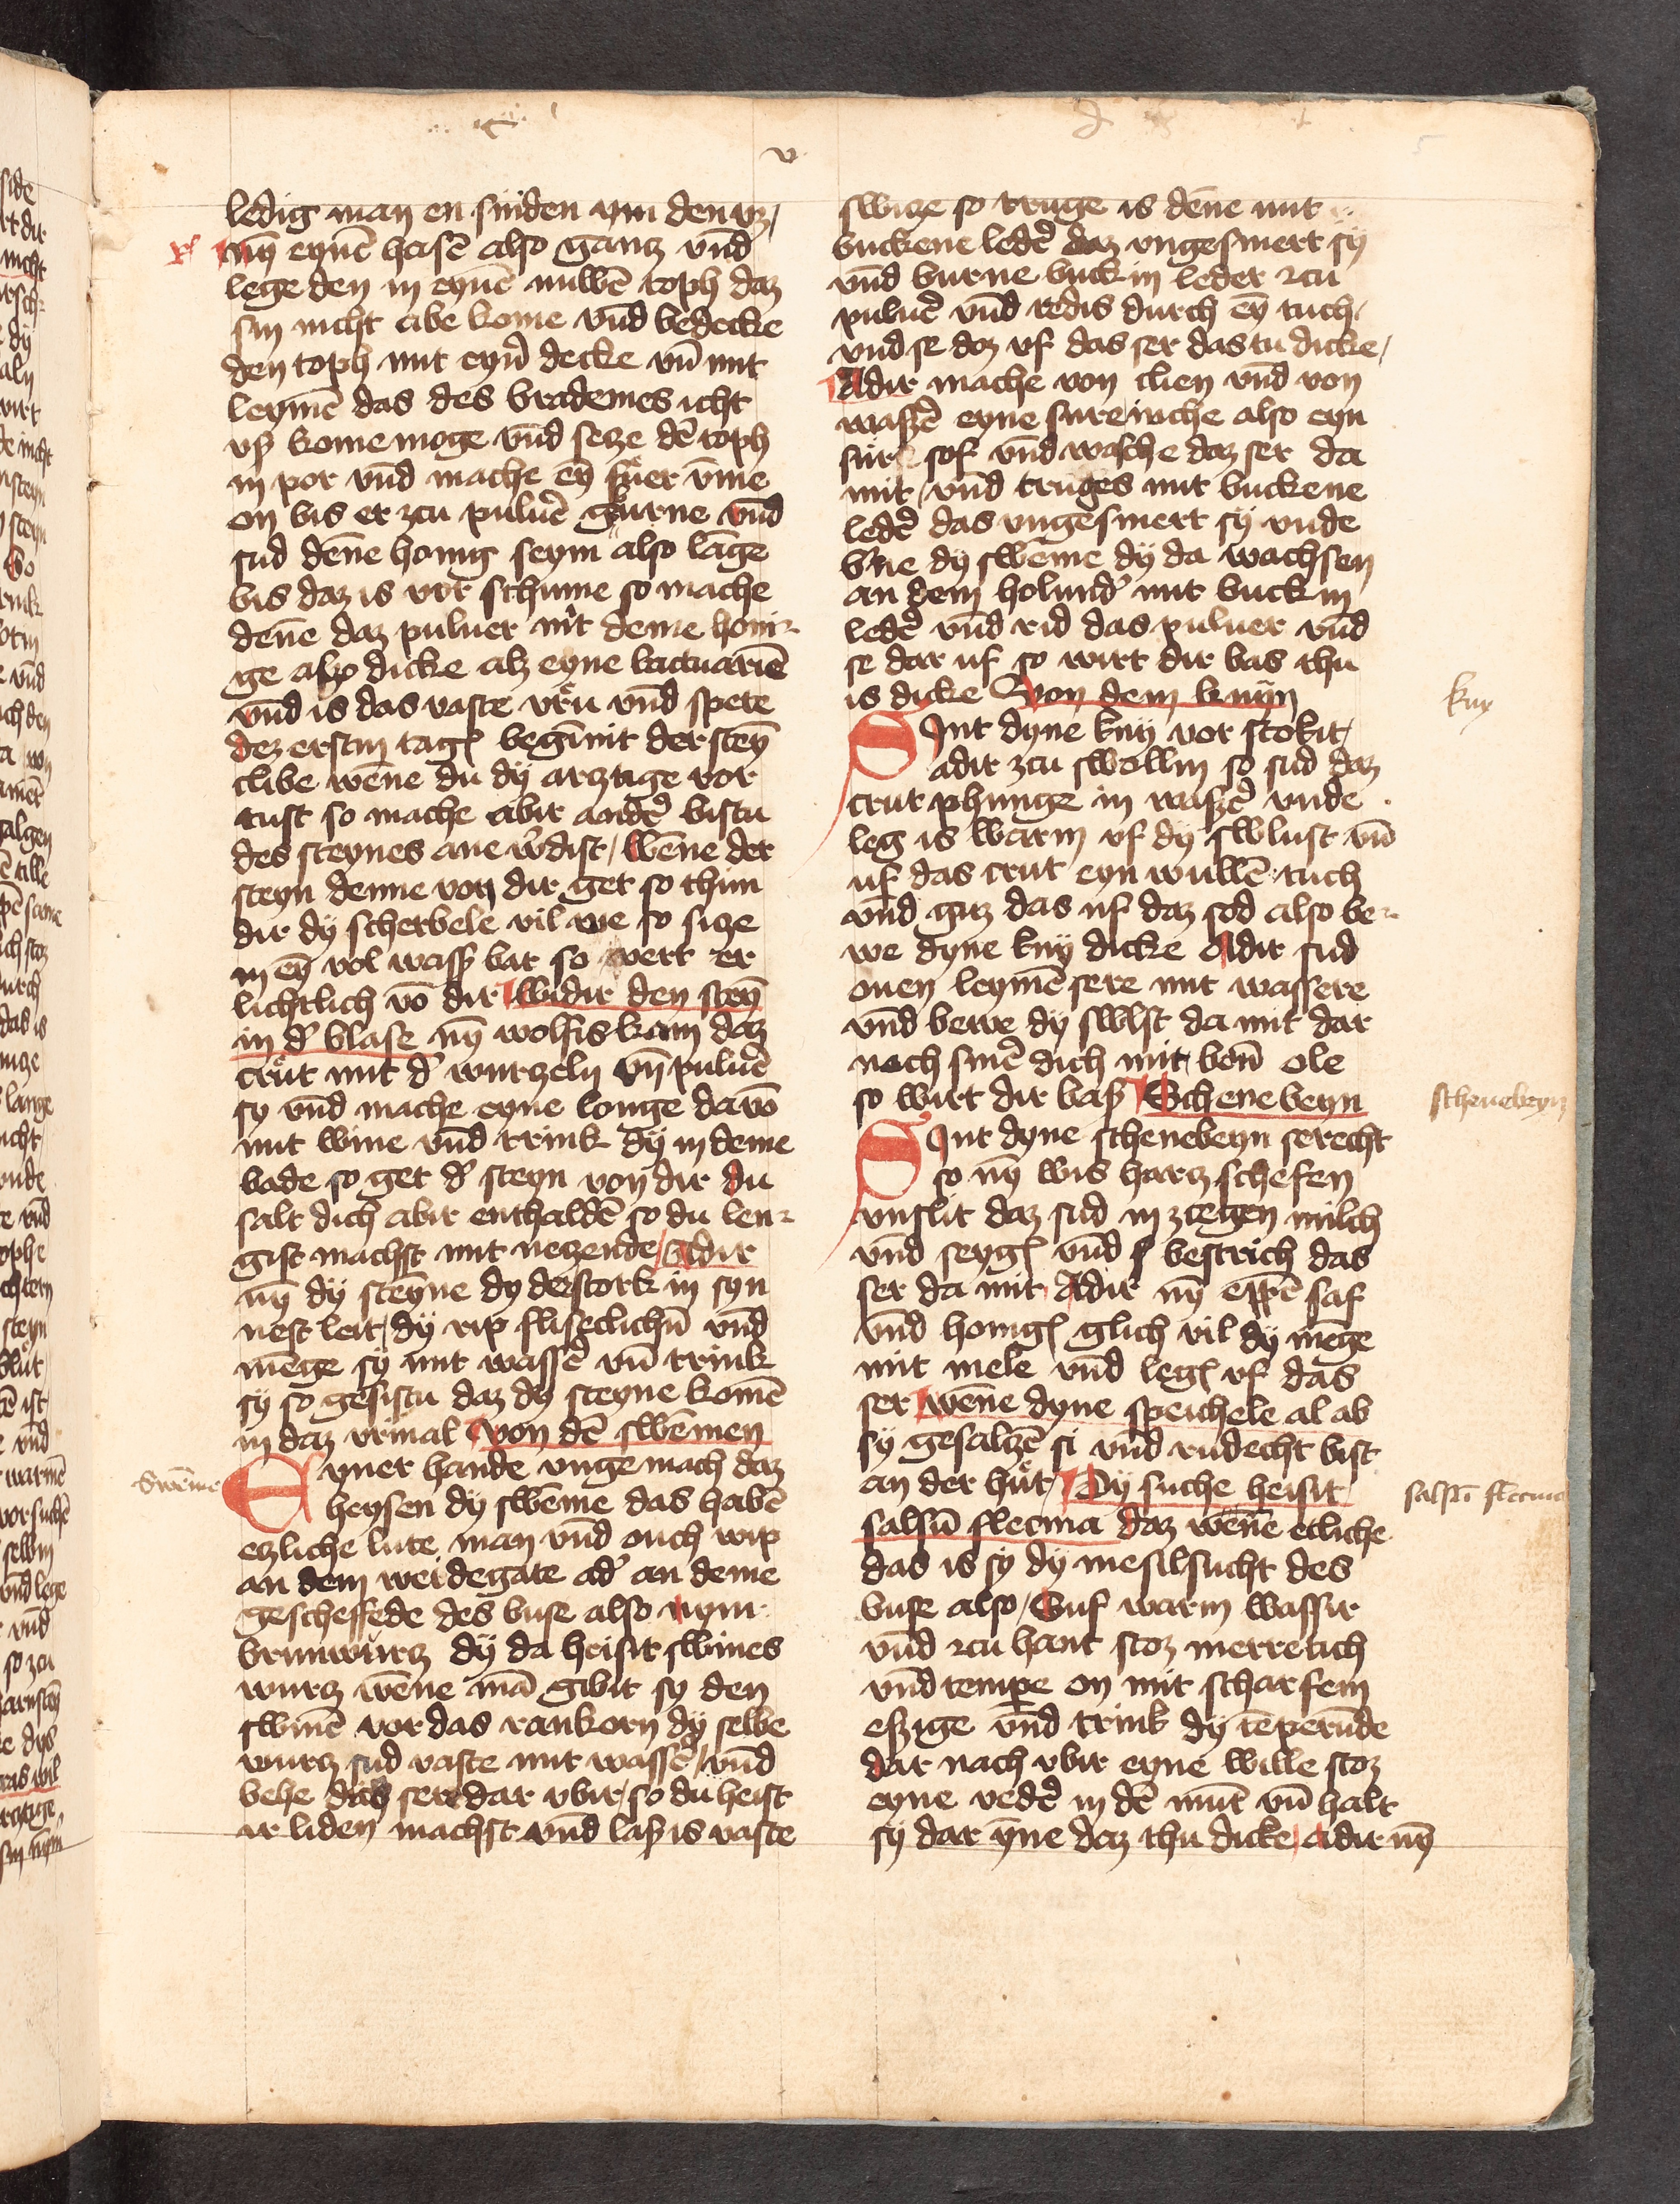 v
ledig man en sniden ym den vz /
nÿ eynē hasē also gantz vnd
lege den in eynē nuwē toph daz
sin nicht abe kome vnd bedecke
den toph mit eyn̄ decke vn̄ mit
leymē das des brademes icht
vß kome moge vnd setze dē toph
in por vnd mache eȳ fuer vm̄e
on bis er zcu puluē gburne vnd
sud dēne honig seym also lange
bis daz is vor schume so mache
dēne daz puluer mit deme honi-
ge also dicke alz eyne lactuariē
vnd is das vaste vrū vnd spete
dez erstin tagꝭ begīnit der steȳ
clibe wēne du dÿ arztige vor
tust so mache abir andē bistu
des steynes ane wdist / wēne der
steyn denne von dir get so thun
dir dÿ scherbele vil we so sitze
in eȳ vol waß bat so vert er
lichtlich vō dir widir den steȳ
in d' blase nȳ wolfis kam daz
crut mit d' wurzeln vn̄ puluē
sy vnd mache eyne louge davō
mit wine vnd trink dÿ in deme
bade so get d' steyn von dir du
salt dich abir enthaldē so du len-
gist machst mit netzende / Adir
nȳ dÿ steyne dy der stork in syn
nest leit / dÿ rip fliseclichn̄ vnd
mēge sÿ mit wassē vn̄ trink
sÿ so gesistu daz dy steyne komē
in daz vrinal von dē swēmen
Eyner hande vnge mach daz
heysen dÿ swēme das habē
etzliche lute man vnd ouch wip
an dem weidegate ad' an deme
gescheffede des buse also nym
brunwurtz dÿ da heisit swines
wurtz wēne mā gibit sy den
swinē vor das rankorn dÿ selbe
wurtz sud vaste mit wassē / vnd
behe das sere dar vbir / so du heist
ir liden machst vnd laß is vaste
swēme
switze so truge is dēne mit
buckene ledē daz vngesmert sÿ
vnd burne buckin leder zcu
puluē vnd redis durch eȳ tuch /
vnd se daz vf das ser das tu dicke /
Adir mache von clien vnd von
waßē eyne sure iuche also eyn
sur sof vnd wasche daz ser da
mit / vnd truges mit buckene
ledē das vngesmert sÿ vnde
bne dÿ swēme dÿ da wachsen
an dem holund' mit buckin
ledē vnd rid das puluer vnd
se dar uf so wirt dir bas thu
is dicke Von dem knÿn
Sint dyne knÿ vor stokit /
adir zcu swollin so sud daz
crut phunge in waßē vnde
leg is warm vf dÿ swlust vn̄
uf das crut eyn wullē tuch
vnd guz das uf daz sod also be-
we dyne knÿ dicke Adir sud
ouen leymē sere mit wassere
vnd bewe dÿ swlst da mit dar
noch smē dich mit bon̄ ole
so wirt dir baß Schenebeyn
Sint dyne schenebeyn serecht
so nȳ wis hartz schefen
vnslit daz sud in zcegen milch
vnd seygꝭ vnd bestrich das
ser da mit Adir nȳ eppē saf
vnd honigꝭ glich vil dÿ mēge
mit mele vnd legꝭ vf das
ser wēne dyne speichele al ab
sÿ gesaltzē si vnd rudecht bist
an der hut / Dÿ suche heisit
salsū flecma daz wēne etliche
das is sÿ dÿ mesilsucht des
buse also / Suf warm wassir
vnd zcu hant stoz merretich
vnd tempe on mit scharfem
eßige vnd trink dÿ tēperūde
dar nach vbir eyne wille stoz
eyne vedē in dē munt vn̄ halt
sÿ dar yne daz thu dicke / adir nȳ
kny
schenebeyn
salsū flecma